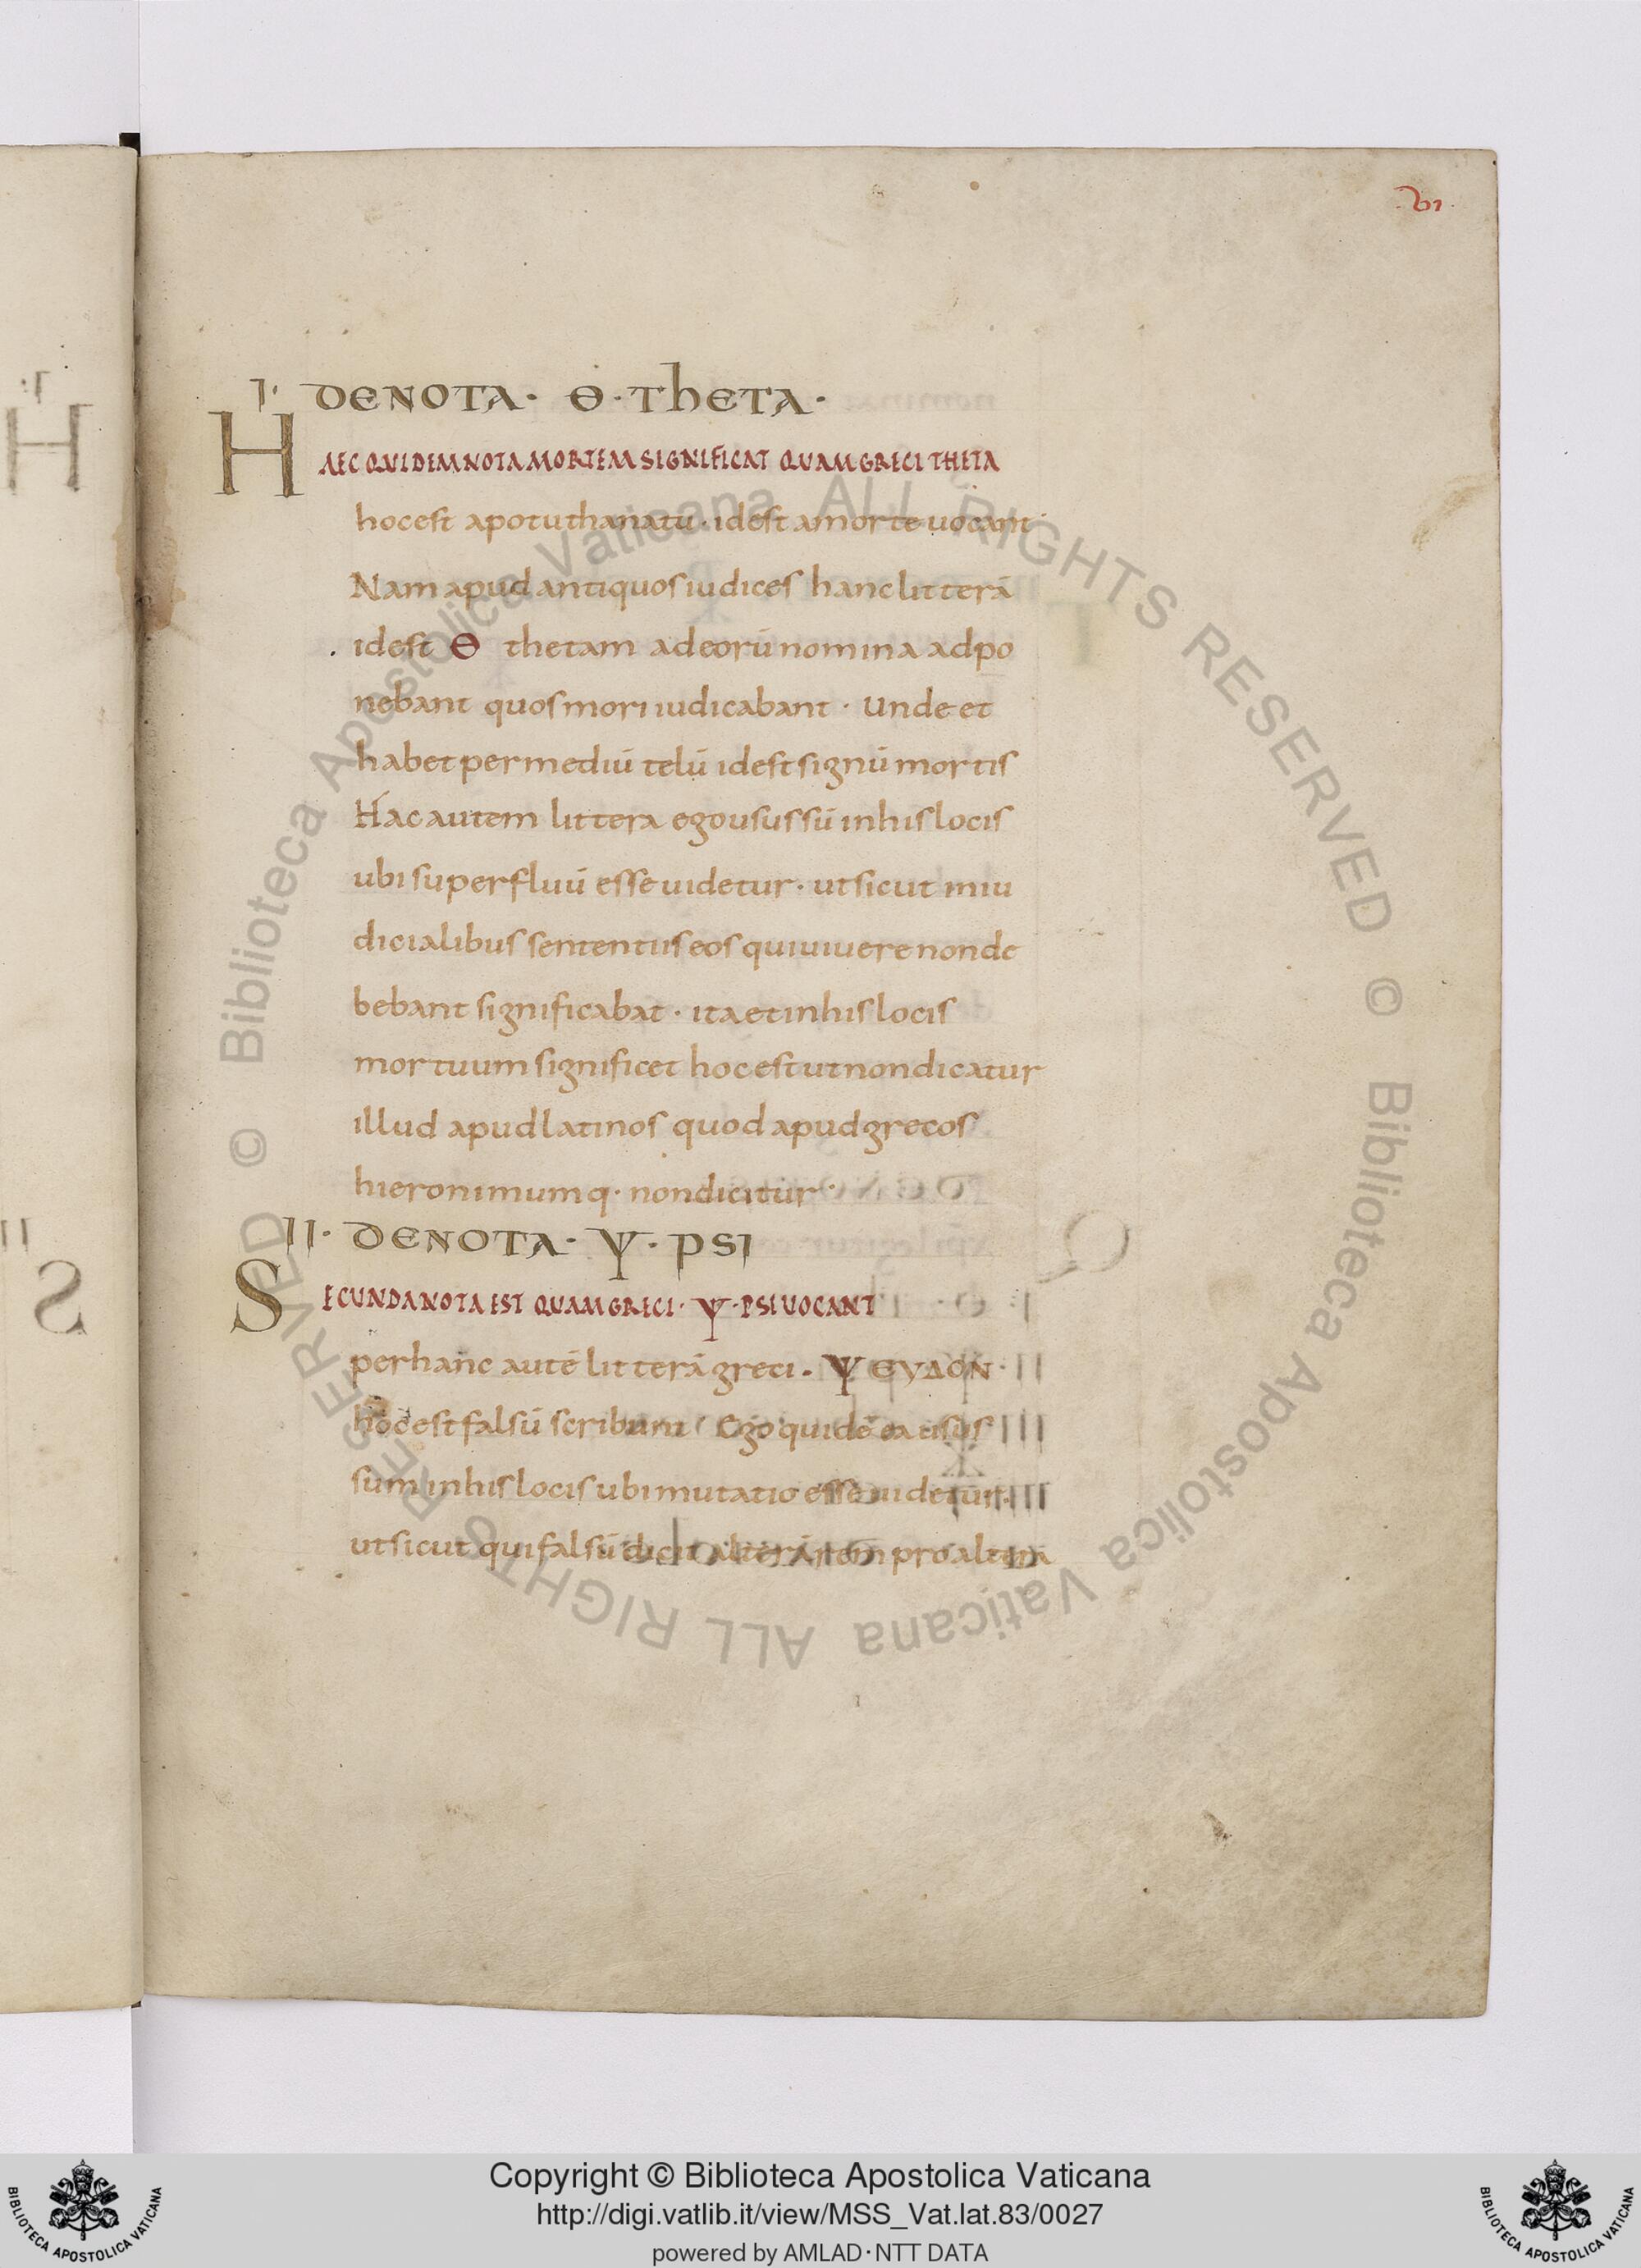 .vi.
I· DENOTA· Θ·ThETA·
HAEC QUIDEM NOTA MORTEM SIGNIFICAT QUAM GRECI THETA
hocest apotuthanatu· idest amorte uocant·
Nam apud antiquos iudices hanc litterā
idest Θ thetam ad eorū nomina adpo
nebant quos mori iudicabant· Unde et
habet per mediū telū idest signū mortis
Hac autem littera ego usus sū inhis locis
ubi superfluū esse uidetur· ut sicut iniu
dicialibus sententiis eos qui uiuere non de
bebant significabat· ita et inhis locis
mortuum significet hoc est ut non dicatur
illud apud latinos quod apud grecos
hieronimumq· non dicitur·
II· DENOTA· Ψ· PSI
SECUNDA NOTA EST QUAM GRECI· Ψ·PSI UOCANT
per hanc autē litterā greci· ΨΕΥΔΟΝ·
hocest falsū scribunt Ego quidē ea usus
sum inhis locis ubi mutatio esse uidetur·
ut sicut qui falsū dicit alterā rem pro altera
Biblioteca Apostolica Vaticana ALL RIGHTS RESERVED © Biblioteca Apostolica Vaticana ALL RIGHTS RESERVED ©
Copyright © Biblioteca Apostolica Vaticana
http://digi.vatlib.it/view/MSS_Vat.lat.83/0027
powered by AMLAD·NTT DATA
BIBLIOTECA APOSTOLICA VATICANA
BIBLIOTECA APOSTOLICA VATICANA